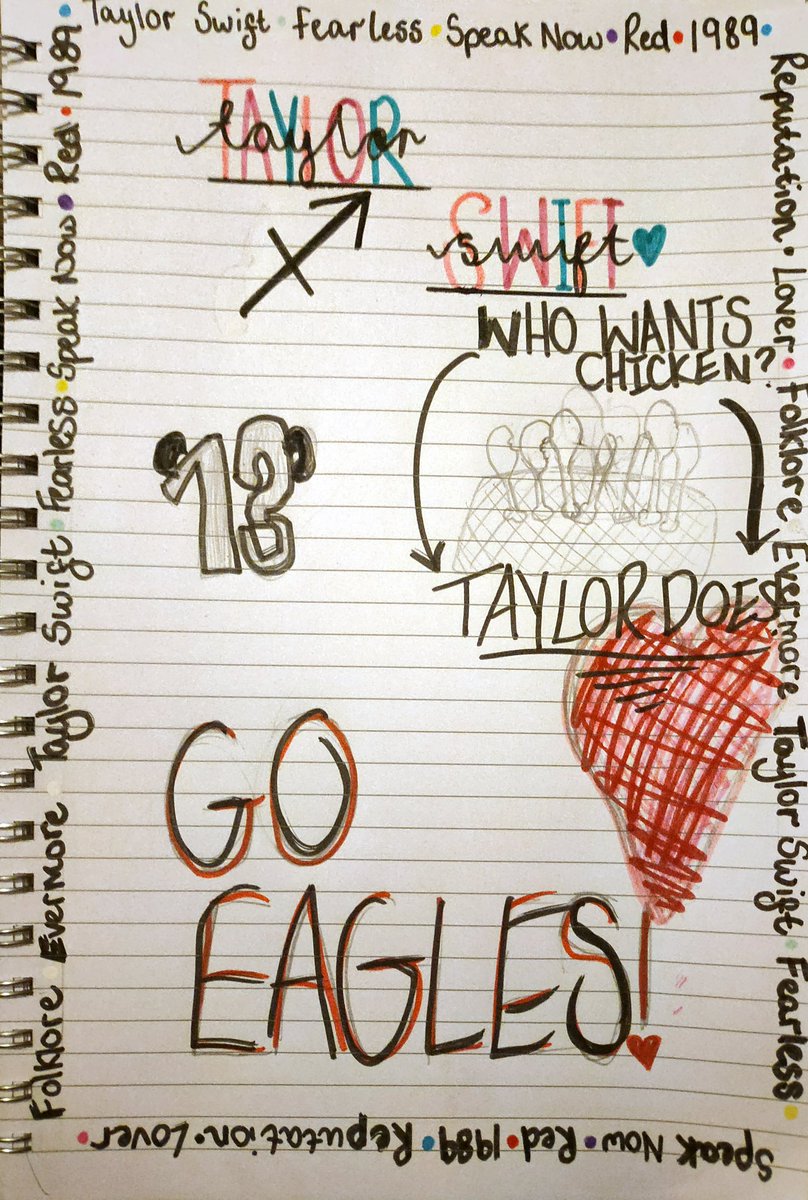 Taylor Swift • Fearless • Speak Now • Red • 1989 •
Reputation • Lover • Folklore Evermore Taylor Swift • Fearless •
Speak Now • Red • 1989 • Reputation • Lover •
Folklore Evermore Taylor Swift • Fearless • Speak Now • Red • 1989 •
TAYLOR
taylor
SWIFT
swift
WHO WANTS
CHICKEN?
13
TAYLOR DOES
GO
EAGLES!